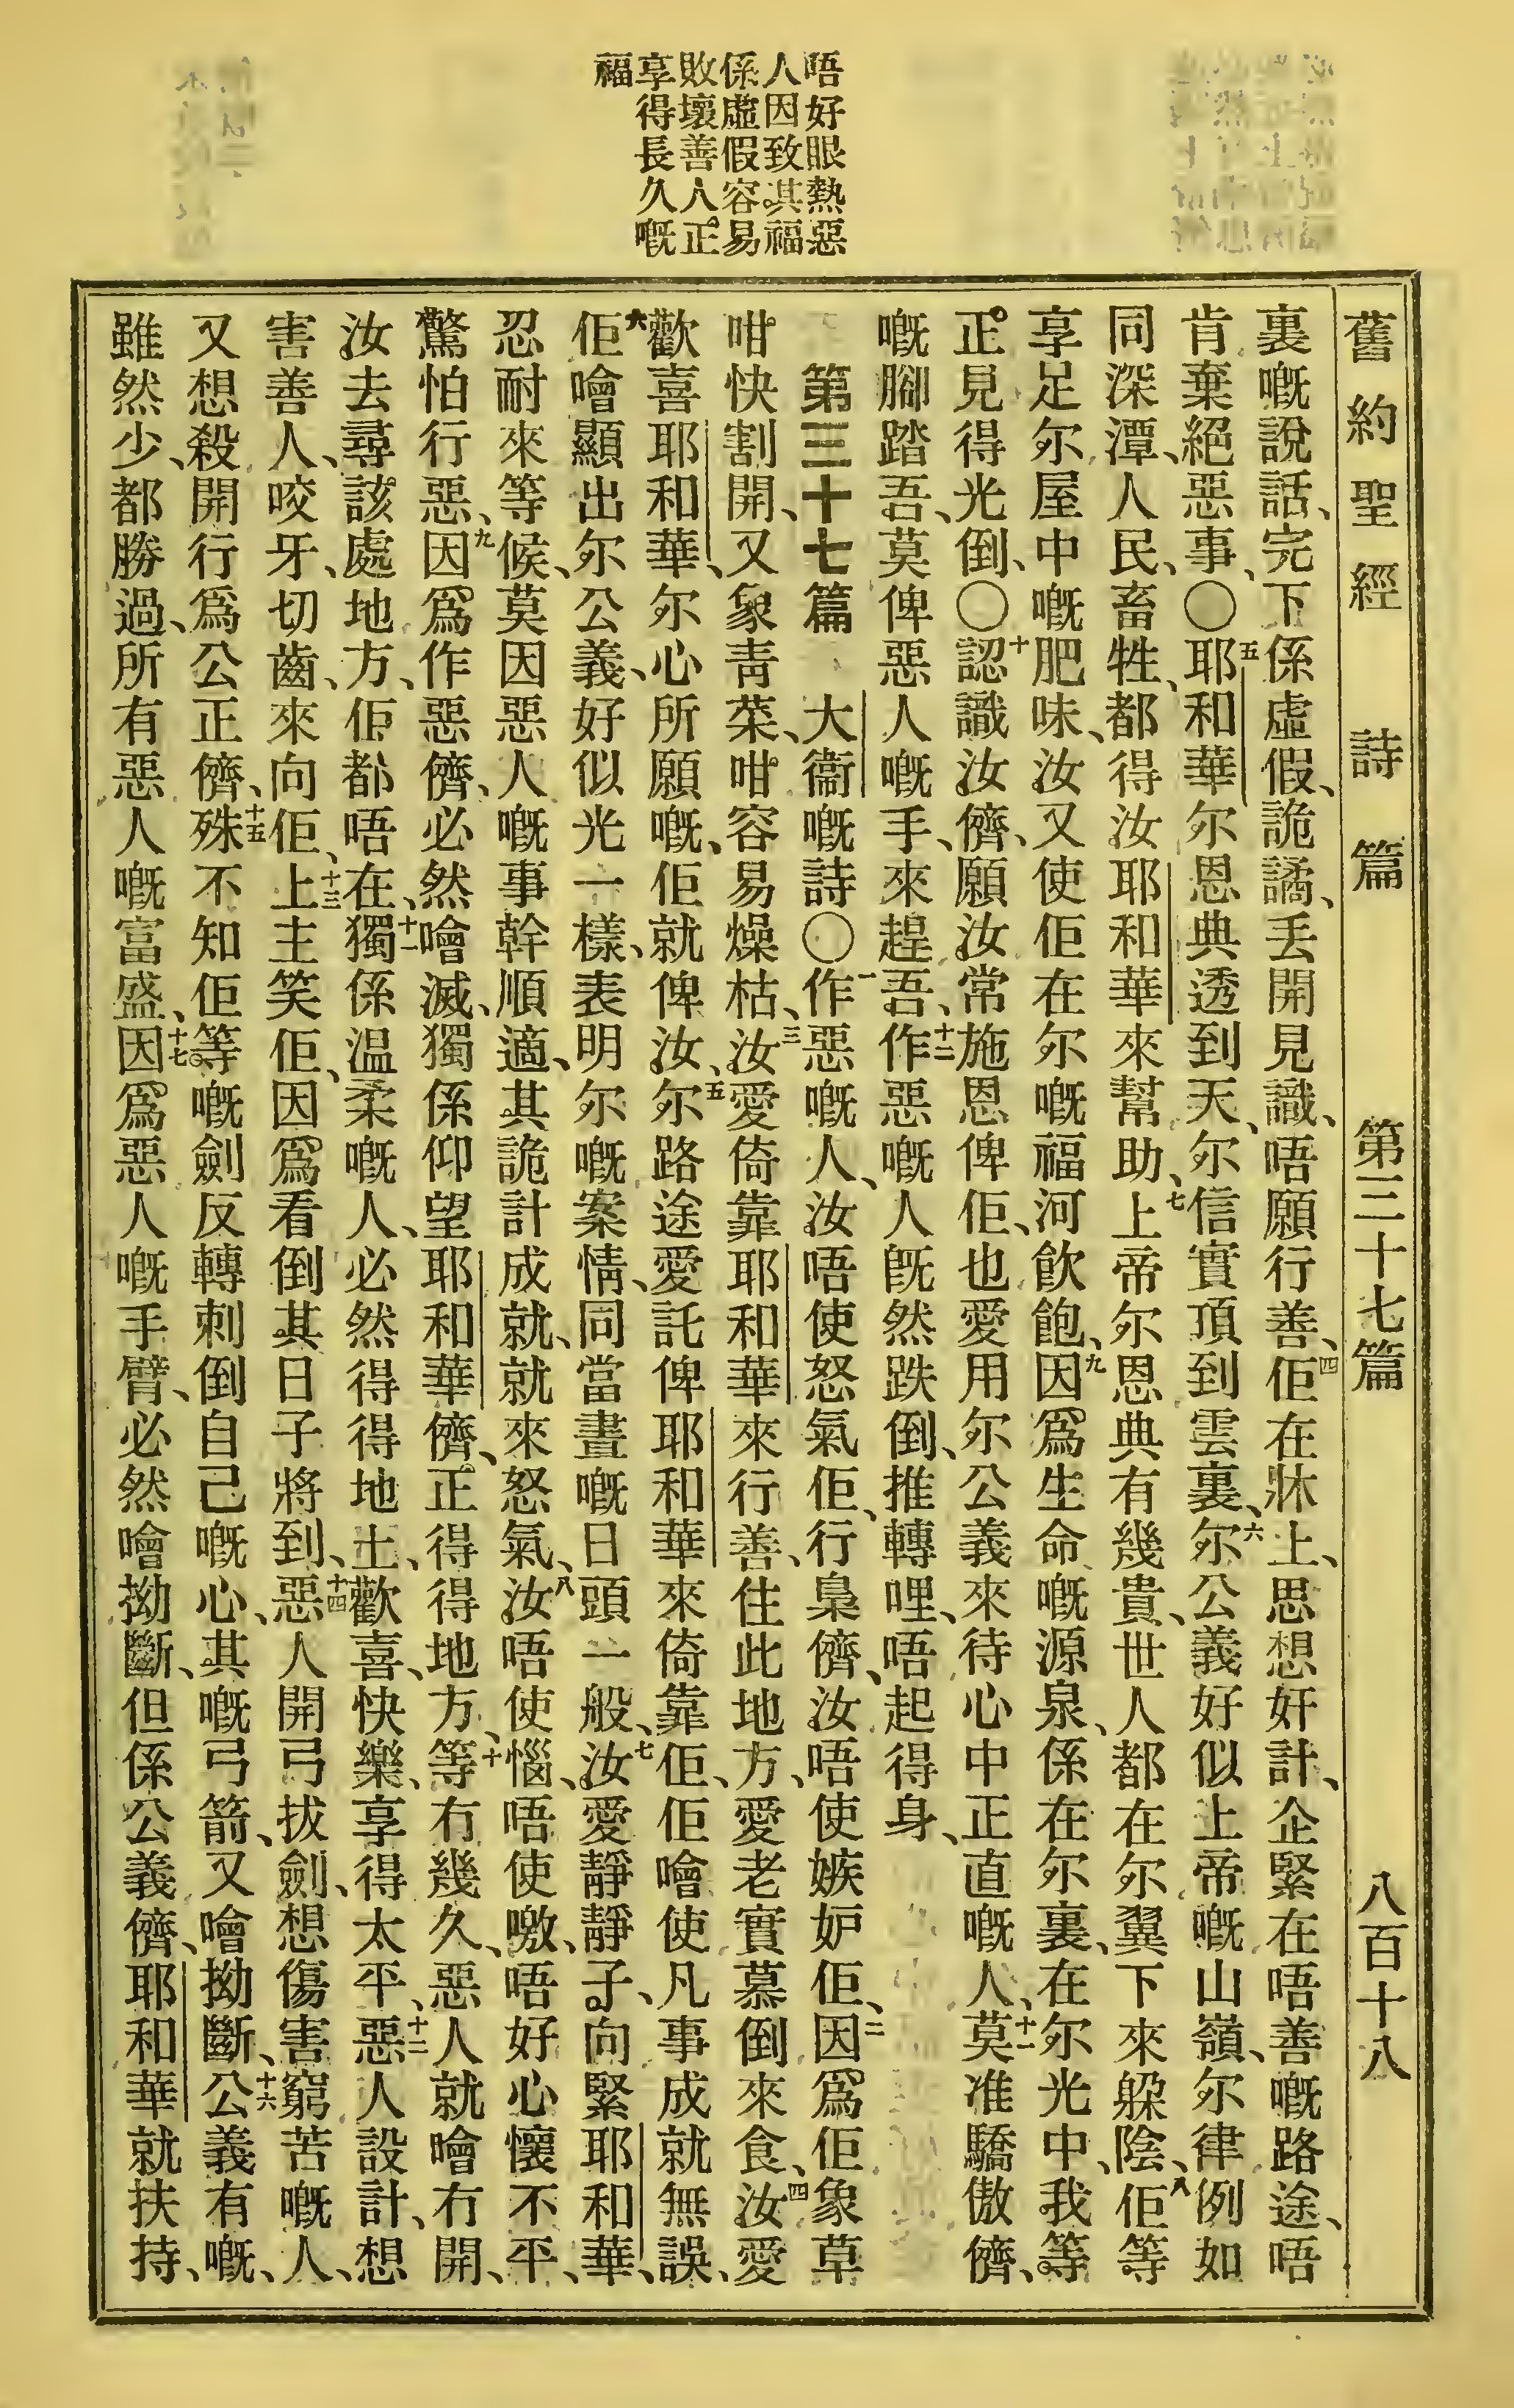 唔好眼熱惡
人因致其福
係虛假容易
敗壞善人正
享得長久嘅
福
舊約聖經 詩篇 第三十七篇 八百十八
裏嘅說話、完下係虛假、詭譎、丟開見識、唔願行善、四佢在牀上、思想奸計、企緊在唔善嘅路途、唔
肯棄絕惡事、〇五耶和華尔恩典透到天、尔信實頂到雲裏、六尔公義好似上帝嘅山嶺、尔律例如
同深潭、人民、畜牲、都得汝耶和華來幫助、七上帝尔恩典有幾貴、世人都在尔翼下來躲陰、八佢等
享足尔屋中嘅肥味、汝又使佢在尔嘅福河飲飽、九因爲生命嘅源泉、係在尔裏、在尔光中、我等
正見得光倒、〇十認識汝儕、願汝常施恩俾佢、也愛用尔公義來待心中正直嘅人、十一莫准驕傲儕、
嘅腳踏吾、莫俾惡人嘅手、來趕吾、十二作惡嘅人旣然跌倒、推轉哩、唔起得身、
第三十七篇 大衞嘅詩〇一作惡嘅人、汝唔使怒氣佢、行梟儕、汝唔使嫉妒佢、二因爲佢象草
咁快割開、又象靑菜、咁容易燥枯、三汝愛倚靠耶和華來行善、住此地方、愛老實慕倒來食、四汝愛
歡喜耶和華、尔心所願嘅、佢就俾汝、五尔路途愛託俾耶和華來倚靠佢、佢噲使凡事成就無誤、
六佢噲顯出尔公義、好似光一樣、表明尔嘅案情、同當晝嘅日頭一般、七汝愛靜靜子、向緊耶和華、
忍耐來等候、莫因惡人嘅事幹順適、其詭計成就、就來怒氣、八汝唔使惱、唔使噭、唔好心懷不平、
驚怕行惡、九因爲作惡儕、必然噲滅、獨係仰望耶和華儕、正得得地方、十等冇幾久、惡人就噲冇開、
汝去尋該處地方、佢都唔在、十一獨係温柔嘅人、必然得得地土、歡喜、快樂、享得太平、十二惡人設計、想
害善人、咬牙、切齒、來向佢、十三上主笑佢、因爲看倒其日子將到、十四惡人開弓拔劍、想傷害窮苦嘅人、
又想殺開行爲公正儕、十五殊不知佢等嘅劍反轉刺倒自己嘅心、其嘅弓箭、又噲拗斷、十六公義有嘅、
雖然少、都勝過、所有惡人嘅富盛、十七因爲惡人嘅手臂、必然噲拗斷、但係公義儕、耶和華就扶持、